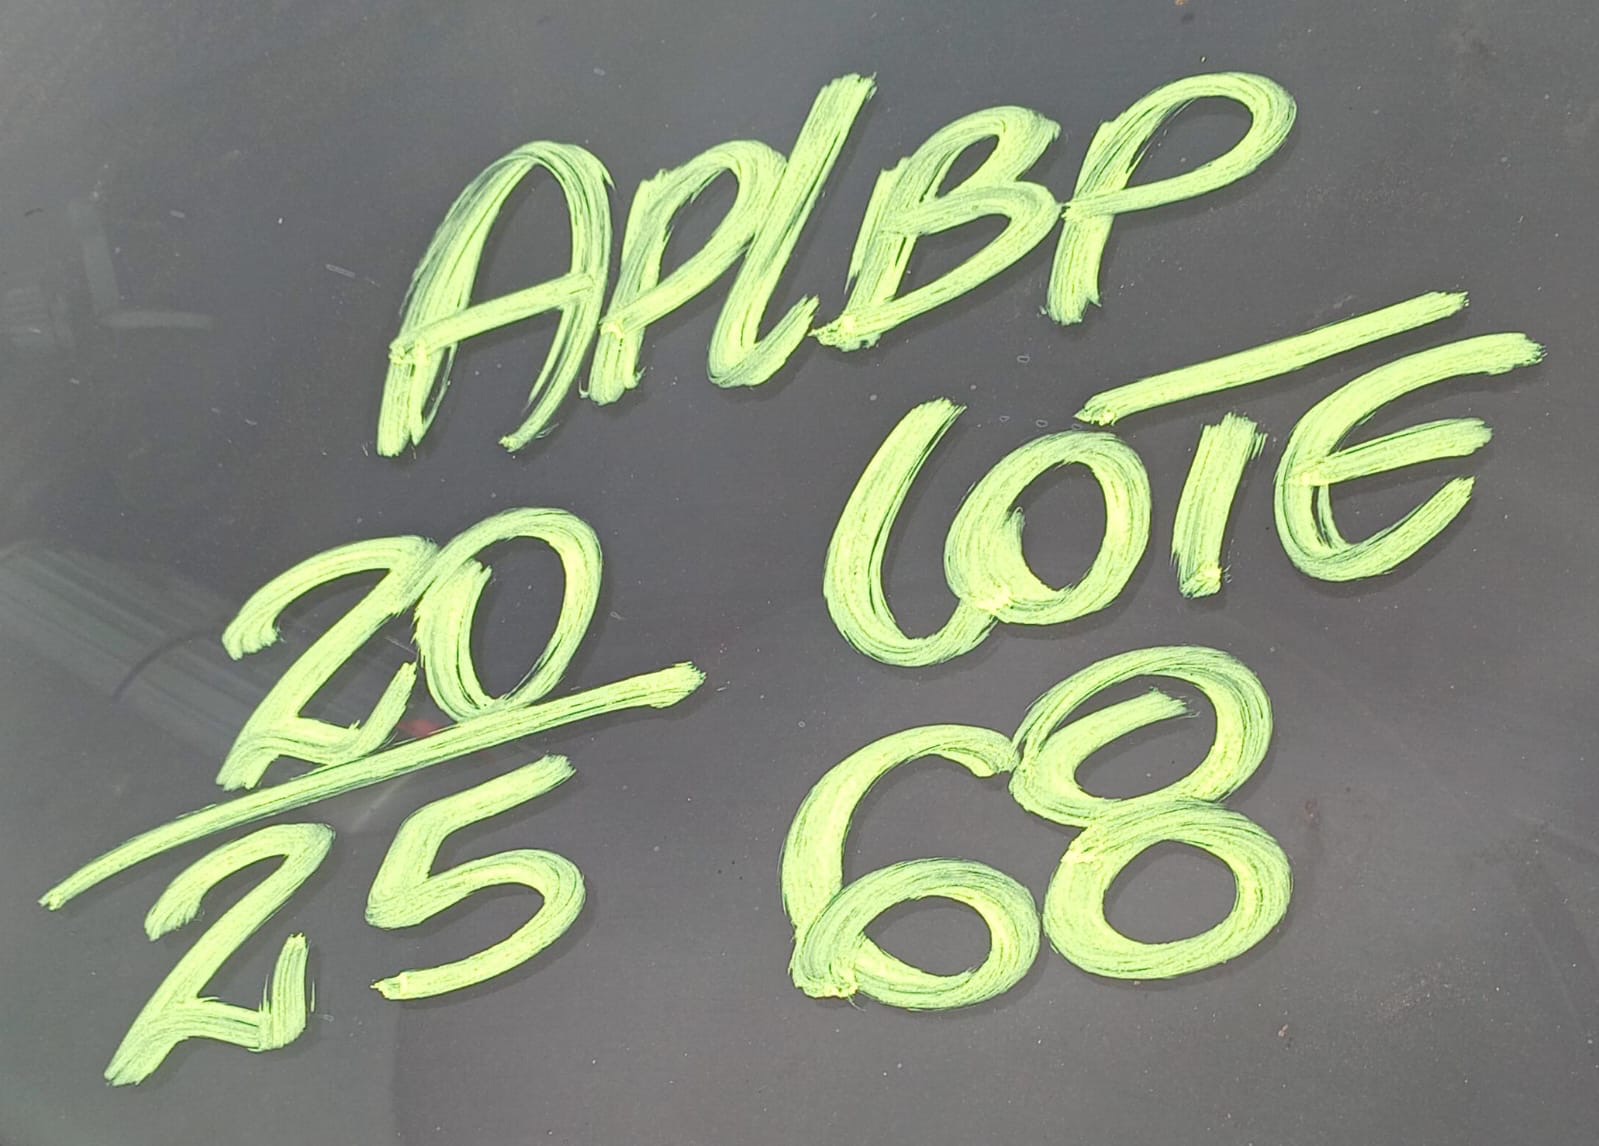 APLBP
LOTE
68
20
25